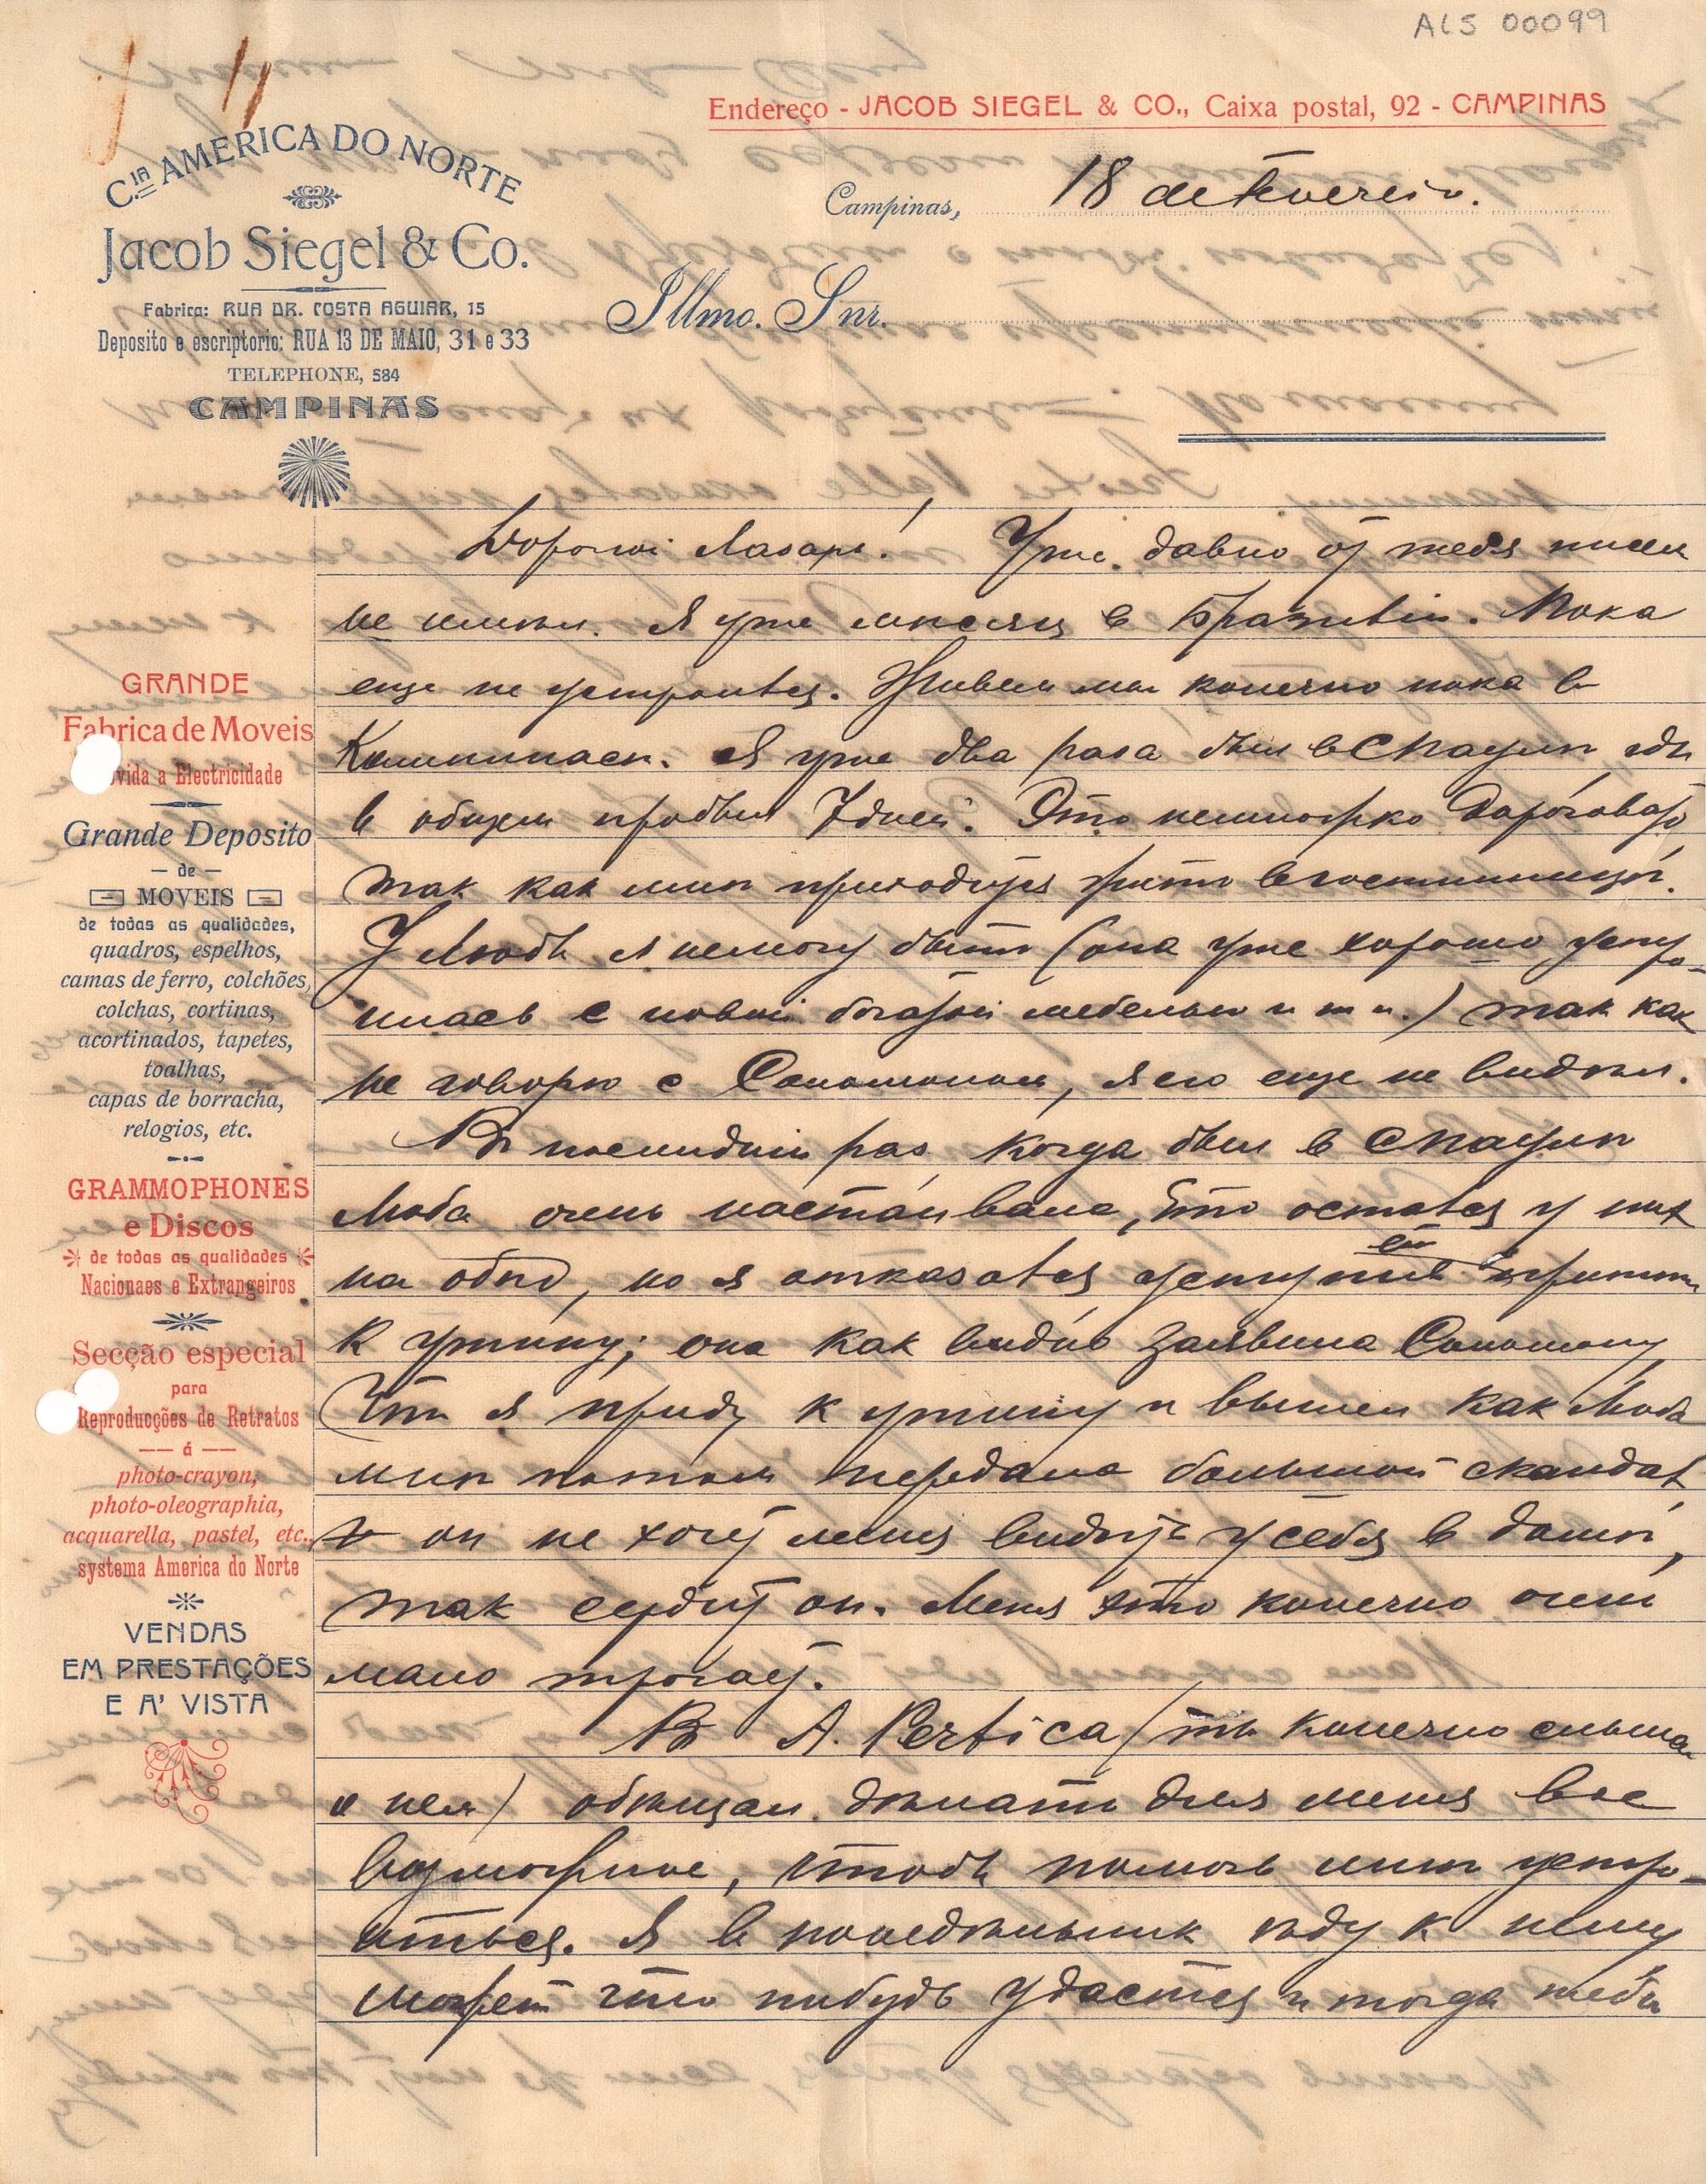 ALS 00099
Endereço - JACOB SIEGEL & CO., Caixa postal, 92 - CAMPINAS
C.IA AMERICA DO NORTE
Jacob Siegel & Co.
Fabrica: RUA DR. COSTA AGUIAR, 15
Deposito e escriptorio: RUA 13 DE MAIO, 31 e 33
TELEPHONE, 584
CAMPINAS
Campinas, 18 de Fevereiro.
Illmo. Snr.
GRANDE
Fabrica de Moveis
vida a Electricidade
Grande Deposito
— de —
MOVEIS
de todas as qualidades,
quadros, espelhos,
camas de ferro, colchões,
colchas, cortinas,
acortinados, tapetes,
toalhas,
capas de borracha,
relogios, etc.
GRAMMOPHONES
e Discos
de todas as qualidades
Nacionaes e Extrangeiros
Secção especial
para
Reproducções de Retratos
— á —
photo-crayon,
photo-oleographia,
acquarella, pastel, etc.,
systema America do Norte
VENDAS
EM PRESTAÇÕES
E A' VISTA
Дорогой Лазарь! Уже давно от тебя писем
не имел. Я уже месяц в Бразилии. Пока
еще не устроился. Живем мы конечно пока в
Кампинасе. Я уже два раза был в С Пауле где
в общем пробыл 7 дней. Это немножко дорого
так как мне приходится жить в гостиннице.
У Любы я не могу быть (она уже хорошо устро-
илась с новой богатой мебелью и т п.) так как
не говорю с Соломоном, я его еще не видел.
В последний раз когда был в С Пауле
Люба очень настаивала, что остался у них
на обед, но я отказался, уступив ей прийти
к ужину; она как видно заявила Соломону
что я приду к ужину и вышел как Люба
мне потом передала большой скандал
он не хочет меня видеть у себя в доме,
так сердит он. Меня это конечно очень
мало трогает.
В A. Pertica (ты конечно слышал
о нем) обещал делать для меня все
возможное, чтобы помочь мне устро-
иться. Я в понедельник еду к нему
может что нибудь удастся и тогда тебе